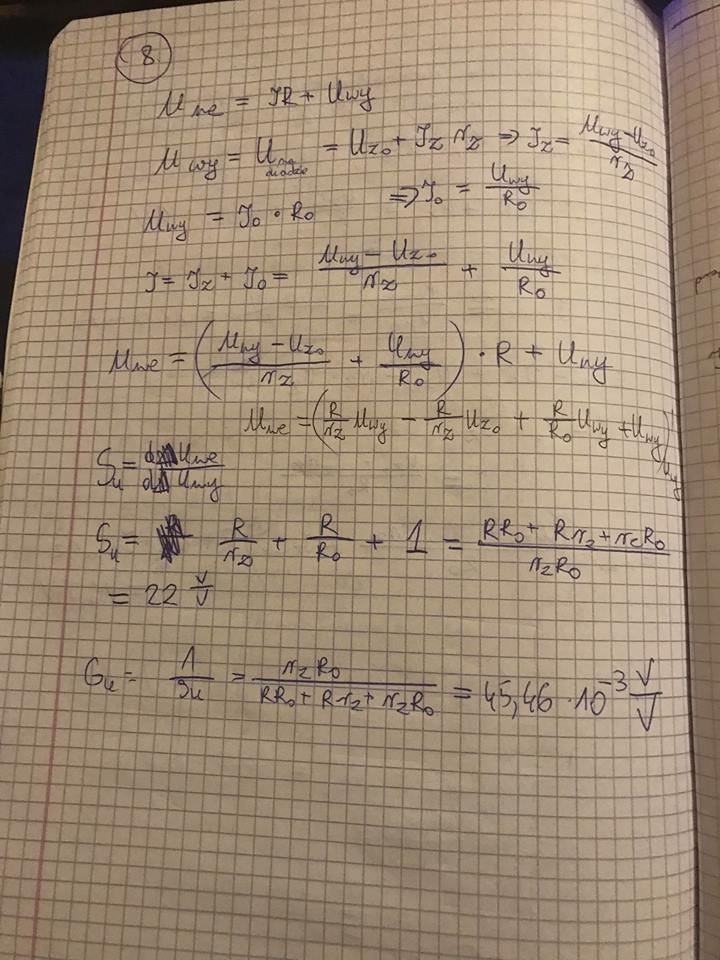 8
U_we = IR + U_wy
U_wy = U_na diodzie = U_z0 + I_z r_z ⇒ I_z = (U_wy - U_z0)/r_z
U_wy = I_0 · R_0 ⇒ I_0 = U_wy/R_0
I = I_z + I_0 = (U_wy - U_z0)/r_z + U_wy/R_0
U_we = ((U_wy - U_z0)/r_z + U_wy/R_0) · R + U_wy
U_we = (R/r_z U_wy - R/r_z U_z0 + R/R_0 U_wy + U_wy)
S_u = dU_we/dU_wy
S_u = R/r_z + R/R_0 + 1 = (RR_0 + Rr_z + r_zR_0)/(r_zR_0)
= 22 V/V
G_u = 1/S_u = r_zR_0/(RR_0 + Rr_z + r_zR_0) = 45,46 · 10^-3 V/V